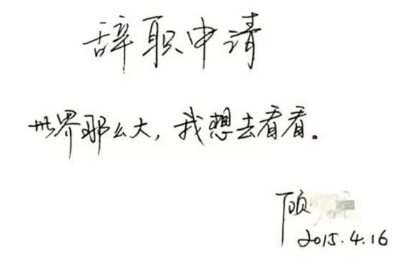 辞职申请
世界那么大，我想去看看。
顾
2015.4.16